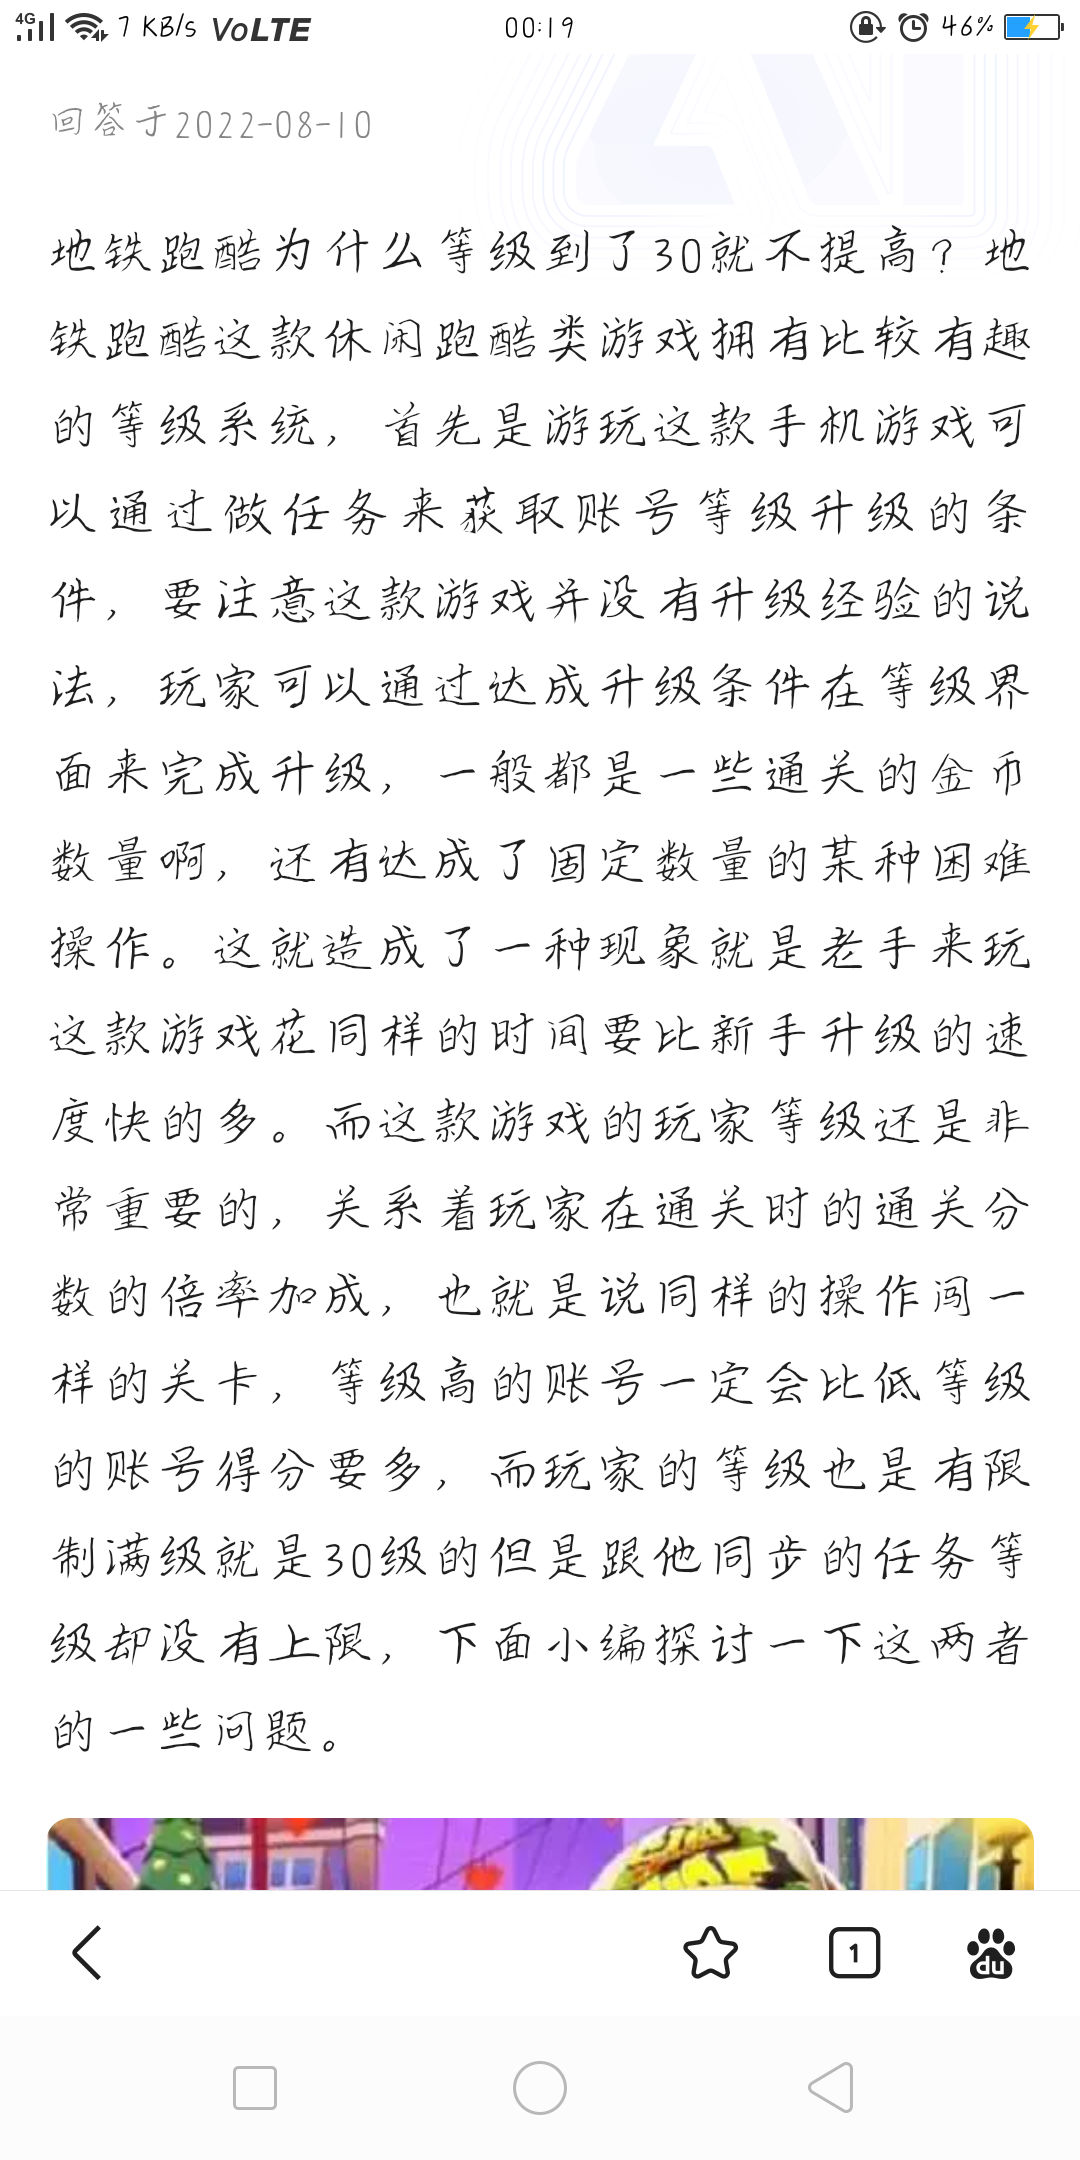 4G 7 KB/s VoLTE 00:19 46%
回答于2022-08-10
地铁跑酷为什么等级到了30就不提高？地
铁跑酷这款休闲跑酷类游戏拥有比较有趣
的等级系统，首先是游玩这款手机游戏可
以通过做任务来获取账号等级升级的条
件，要注意这款游戏并没有升级经验的说
法，玩家可以通过达成升级条件在等级界
面来完成升级，一般都是一些通关的金币
数量啊，还有达成了固定数量的某种困难
操作。这就造成了一种现象就是老手来玩
这款游戏花同样的时间要比新手升级的速
度快的多。而这款游戏的玩家等级还是非
常重要的，关系着玩家在通关时的通关分
数的倍率加成，也就是说同样的操作闯一
样的关卡，等级高的账号一定会比低等级
的账号得分要多，而玩家的等级也是有限
制满级就是30级的但是跟他同步的任务等
级却没有上限，下面小编探讨一下这两者
的一些问题。
1
du